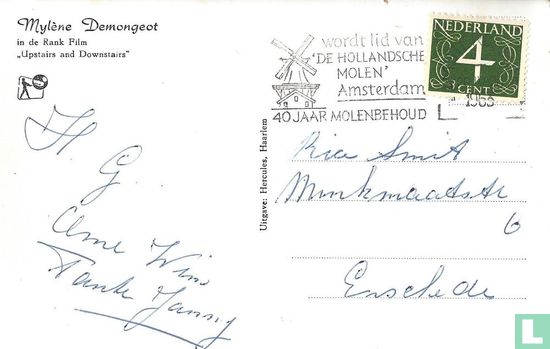 Mylène Demongeot
in de Rank Film
„Upstairs and Downstairs"
H
G.
Ome Wim
Tante Janny
Uitgave: Hercules, Haarlem
wordt lid van
'DE HOLLANDSCHE
MOLEN'
Amsterdam
40 JAAR MOLENBEHOUD
NEDERLAND
4
CENT
1963
Smit
6
Enschede
LastDodo